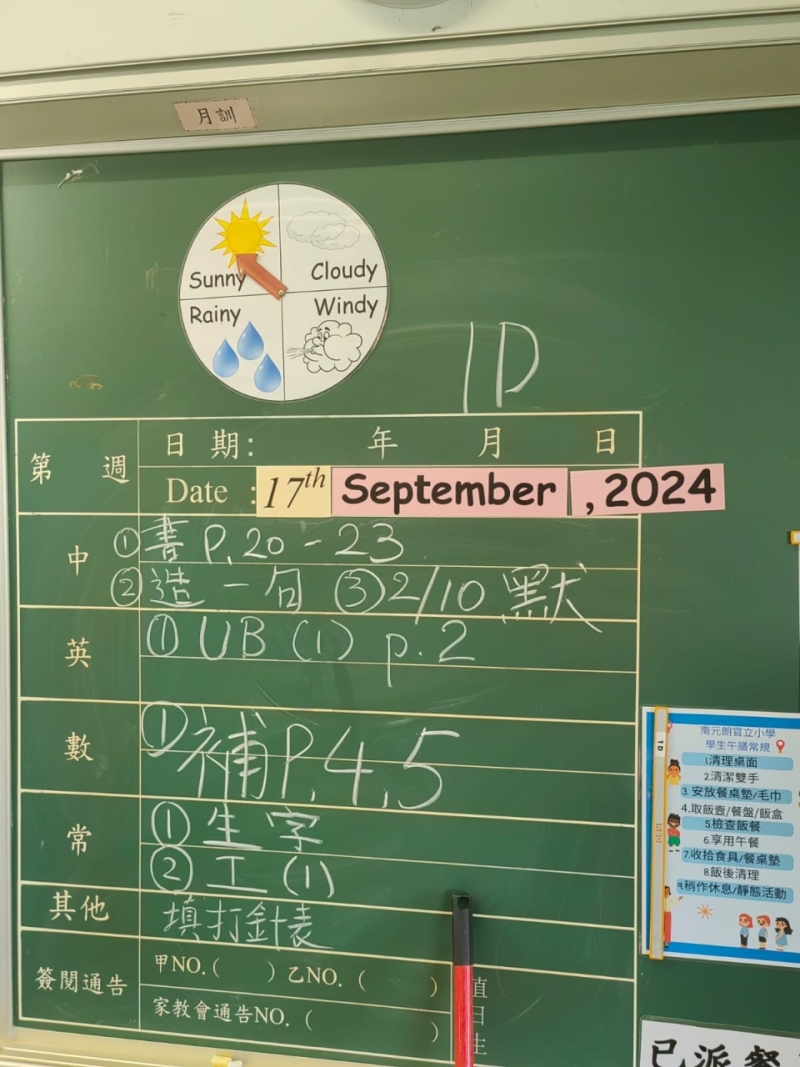 月訓
Sunny
Cloudy
Rainy
Windy
1D
第 週
日 期: 年 月 日
Date : 17th September , 2024
中
①書 P.20-23
②造一句 ③2/10 默
英
①UB (1) p.2
數
①補P.4,5
常
①生字
②工(1)
其他
填打針表
簽閱通告
甲NO.( ) 乙NO.( )
家教會通告NO.( )
值日生
南元朗官立小學
學生午膳常規
1D
1.清理桌面
2.清潔雙手
3.安放餐桌墊/毛巾
4.取飯壺/餐盤/飯盒
5.檢查飯餐
6.享用午餐
7.收拾食具/餐桌墊
8.飯後清理
9.稍作休息/靜態活動
已派餐